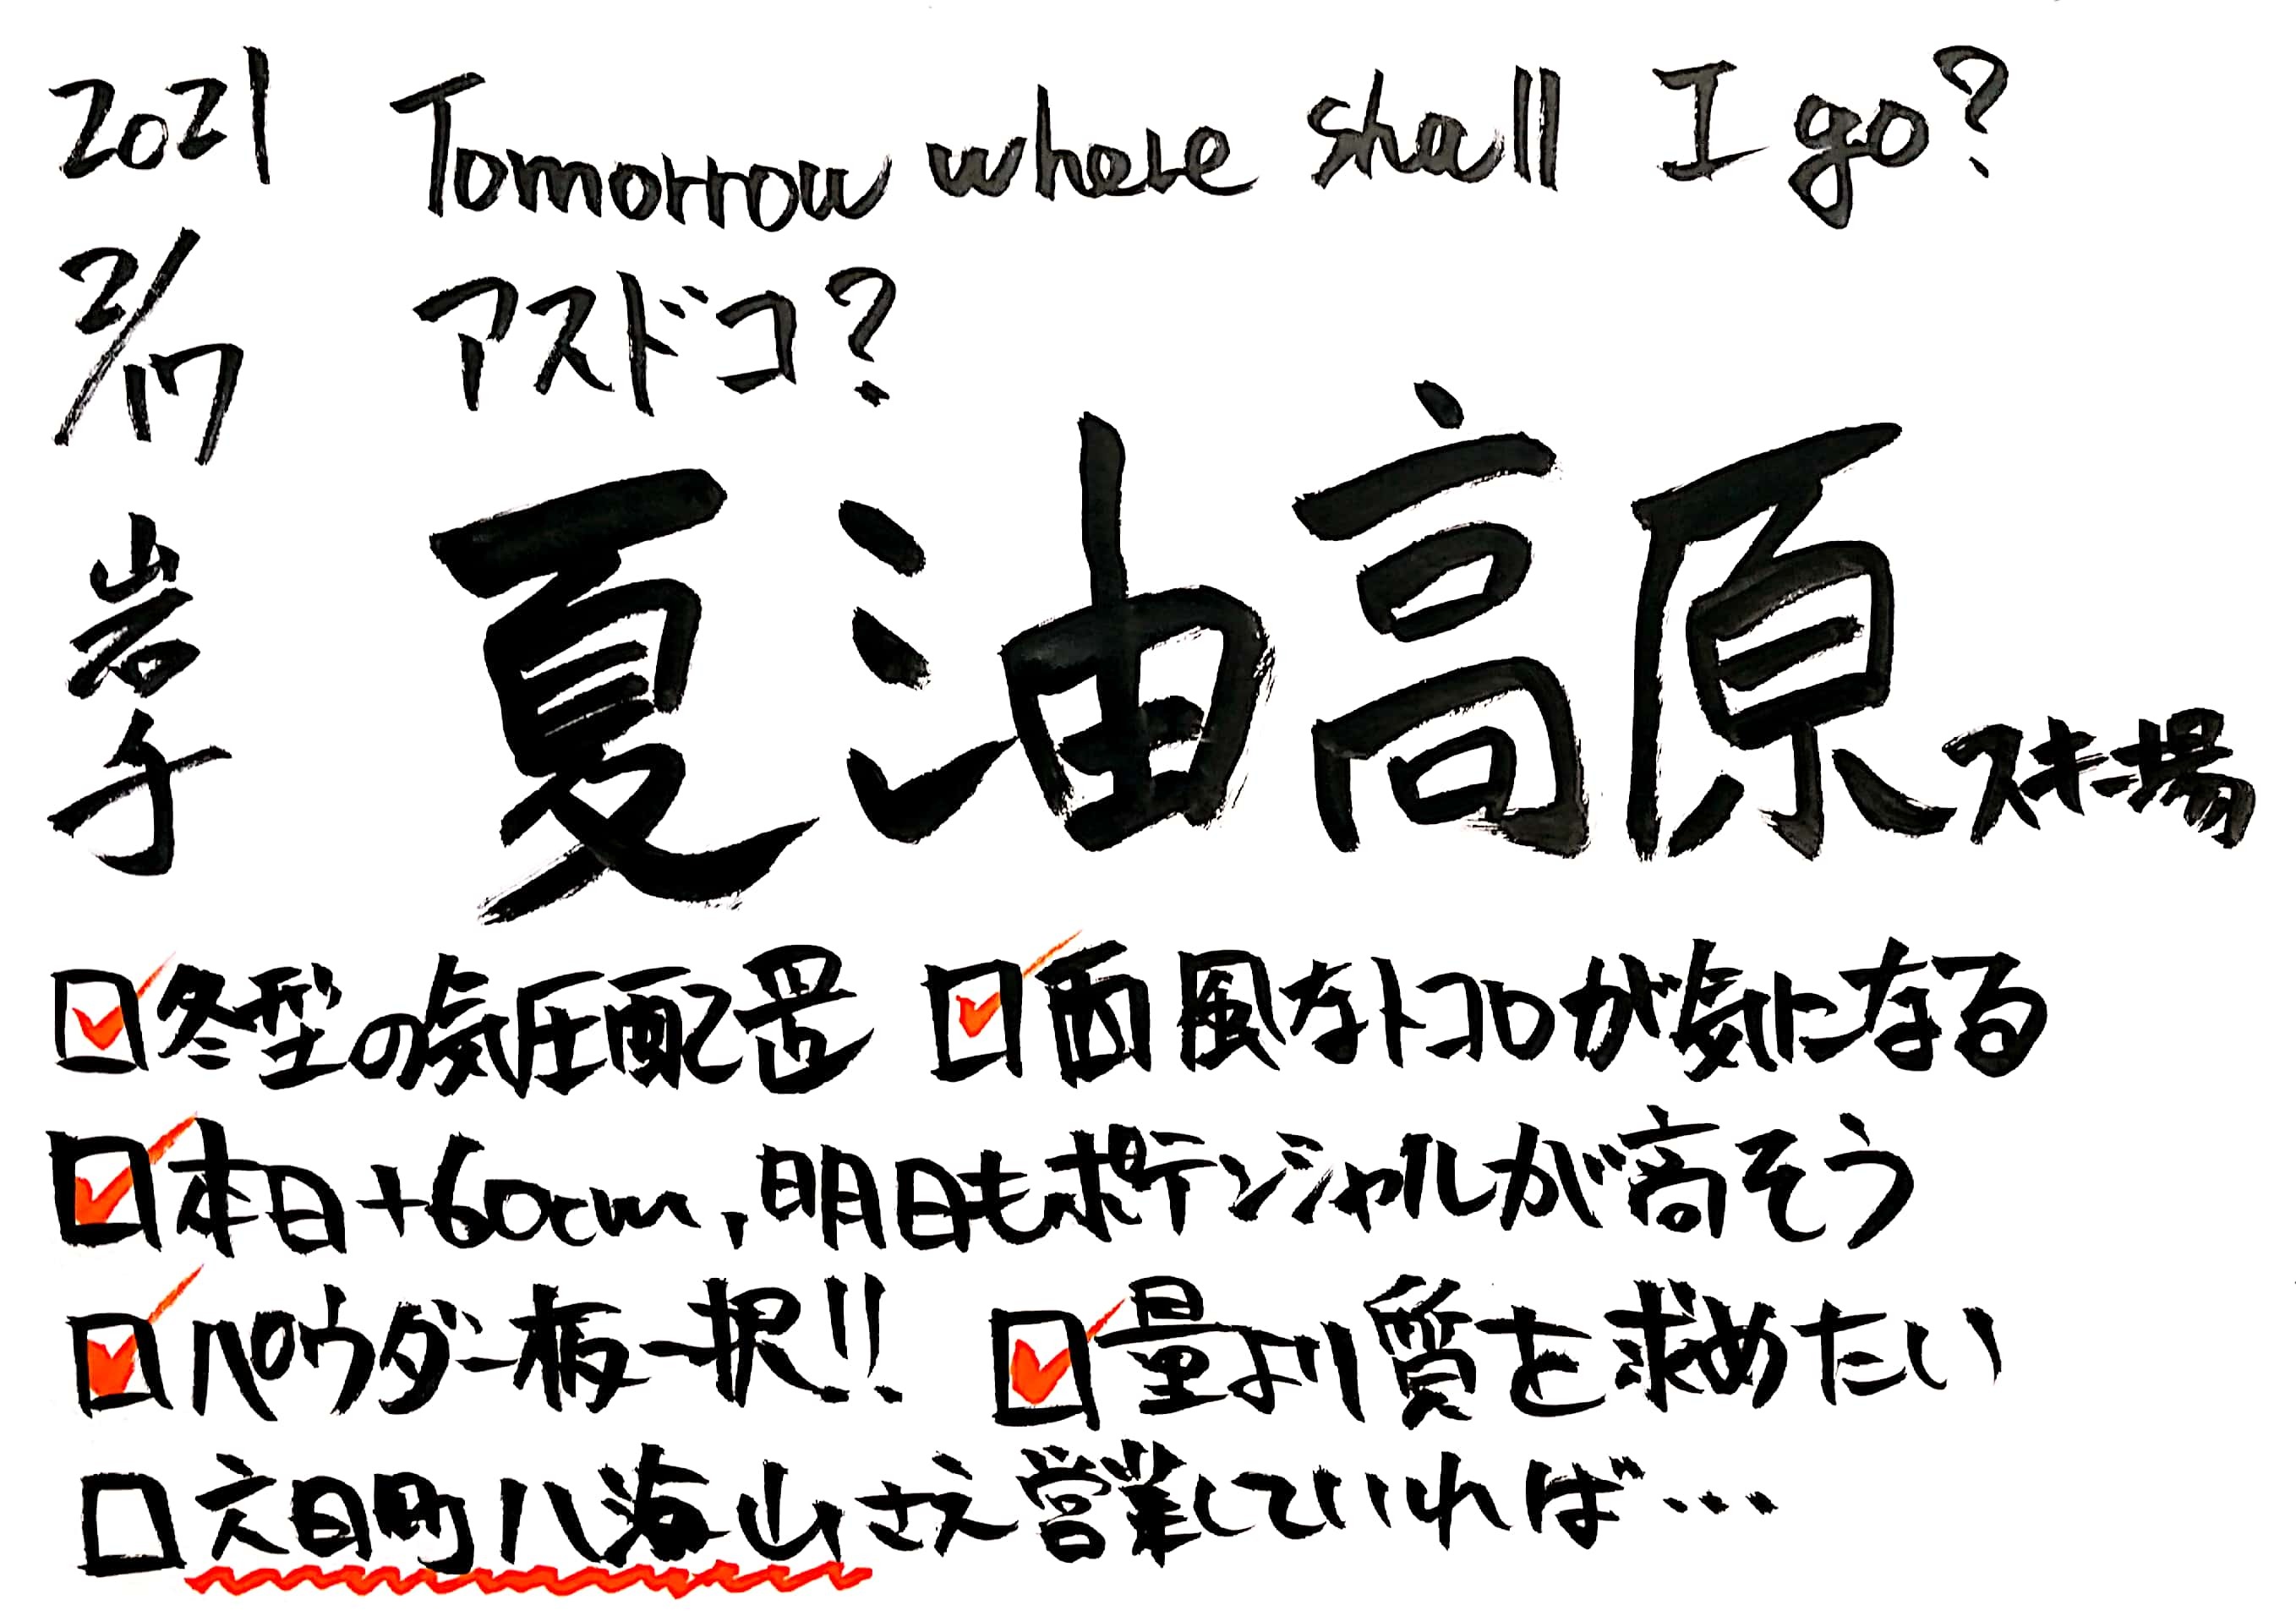 2021 Tomorrow where shall I go?
2/17 アスドコ?
岩手 夏油高原スキー場
☑冬型の気圧配置 ☑西風なトコロが気になる
☑本日+60cm, 明日もポテンシャルが高そう
☑パウダー板一択!! ☑量より質を求めたい
☐六日町八海山さえ営業していれば…